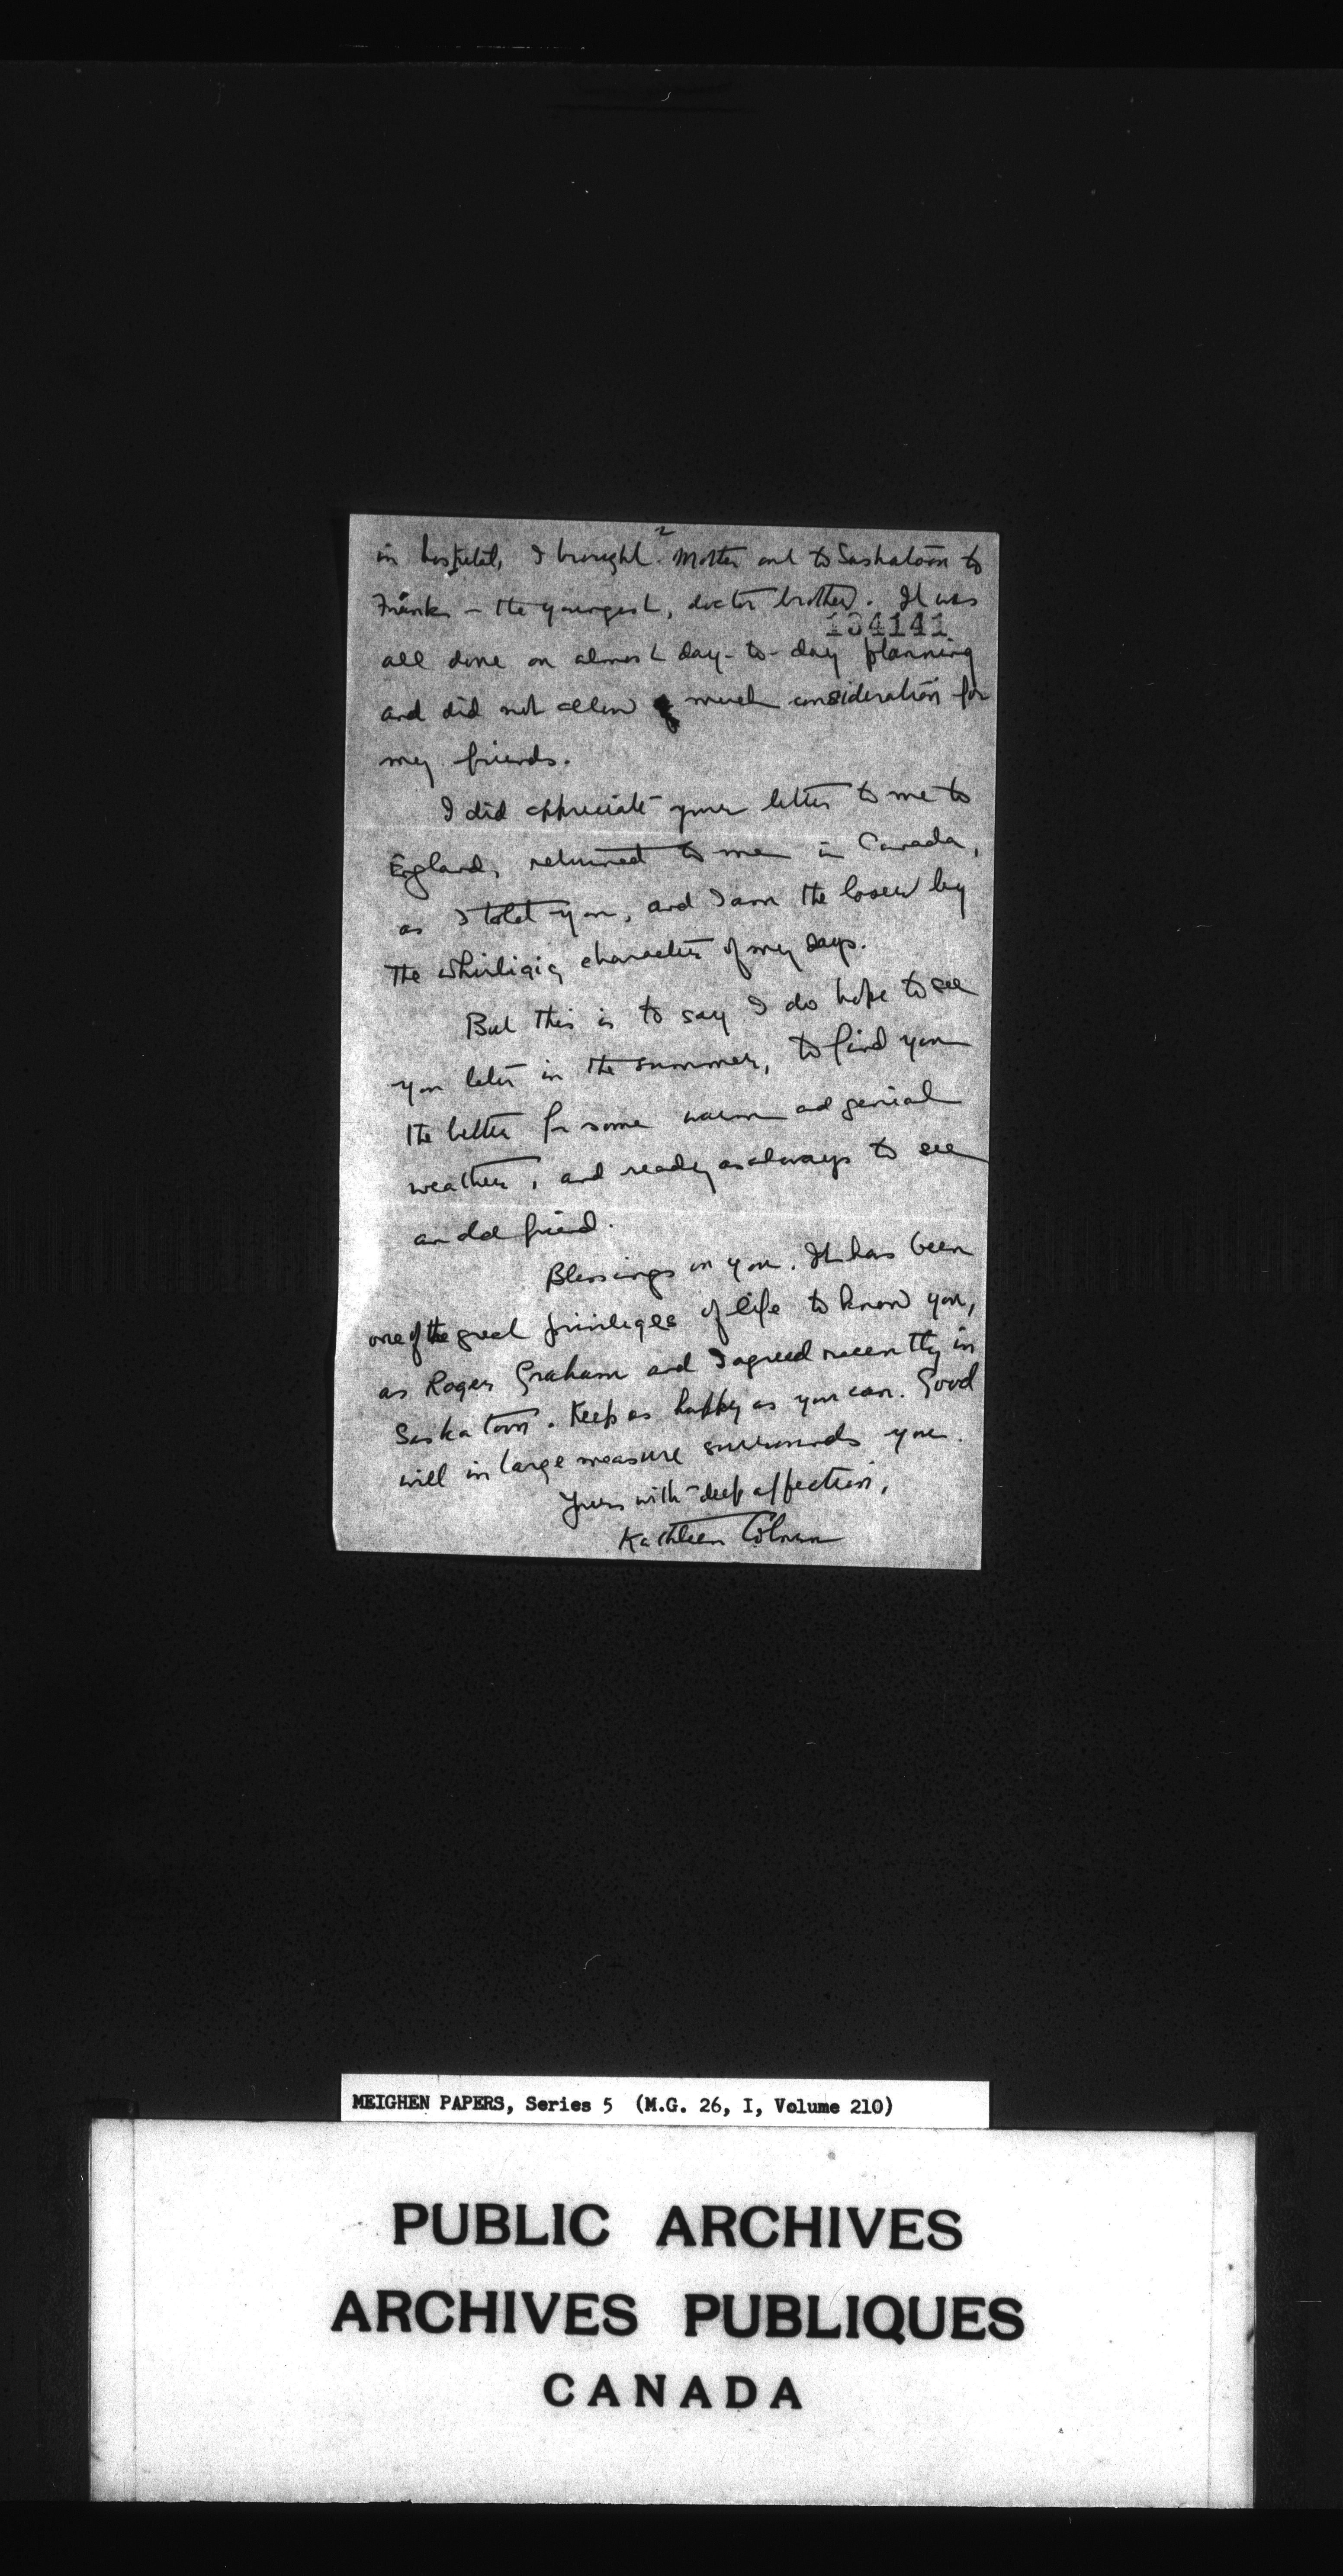 2
in hospital, I brought Mother out to Saskatoon to
Frank - the youngest, doctor brother. It was
134141
all done on almost day-to-day planning
and did not allow much consideration for
my friends.
I did appreciate your letter to me to
England, returned to me in Canada,
as I told you, and I am the loser by
the whirligig character of my days.
But this is to say I do hope to see
you later in the summer, to find you
the better for some warm and genial
weather, and ready as always to see
an old friend.
Blessings on you. It has been
one of the great privileges of life to know you,
as Roger Graham and I agreed recently in
Saskatoon. Keep as happy as you can. Good
will in large measure surrounds you.
Yours with deep affection,
Kathleen
MEIGHEN PAPERS, Series 5 (M.G. 26, I, Volume 210)
PUBLIC ARCHIVES
ARCHIVES PUBLIQUES
CANADA